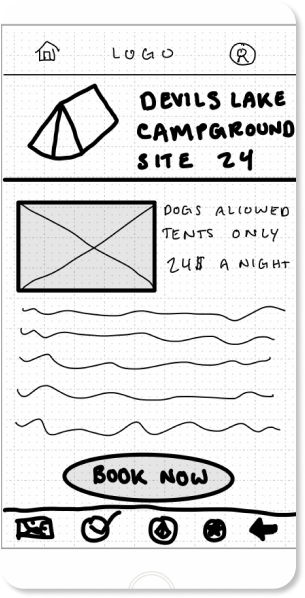 LOGO
DEVILS LAKE
CAMPGROUND
SITE 24
DOGS ALLOWED
TENTS ONLY
24$ A NIGHT
BOOK NOW